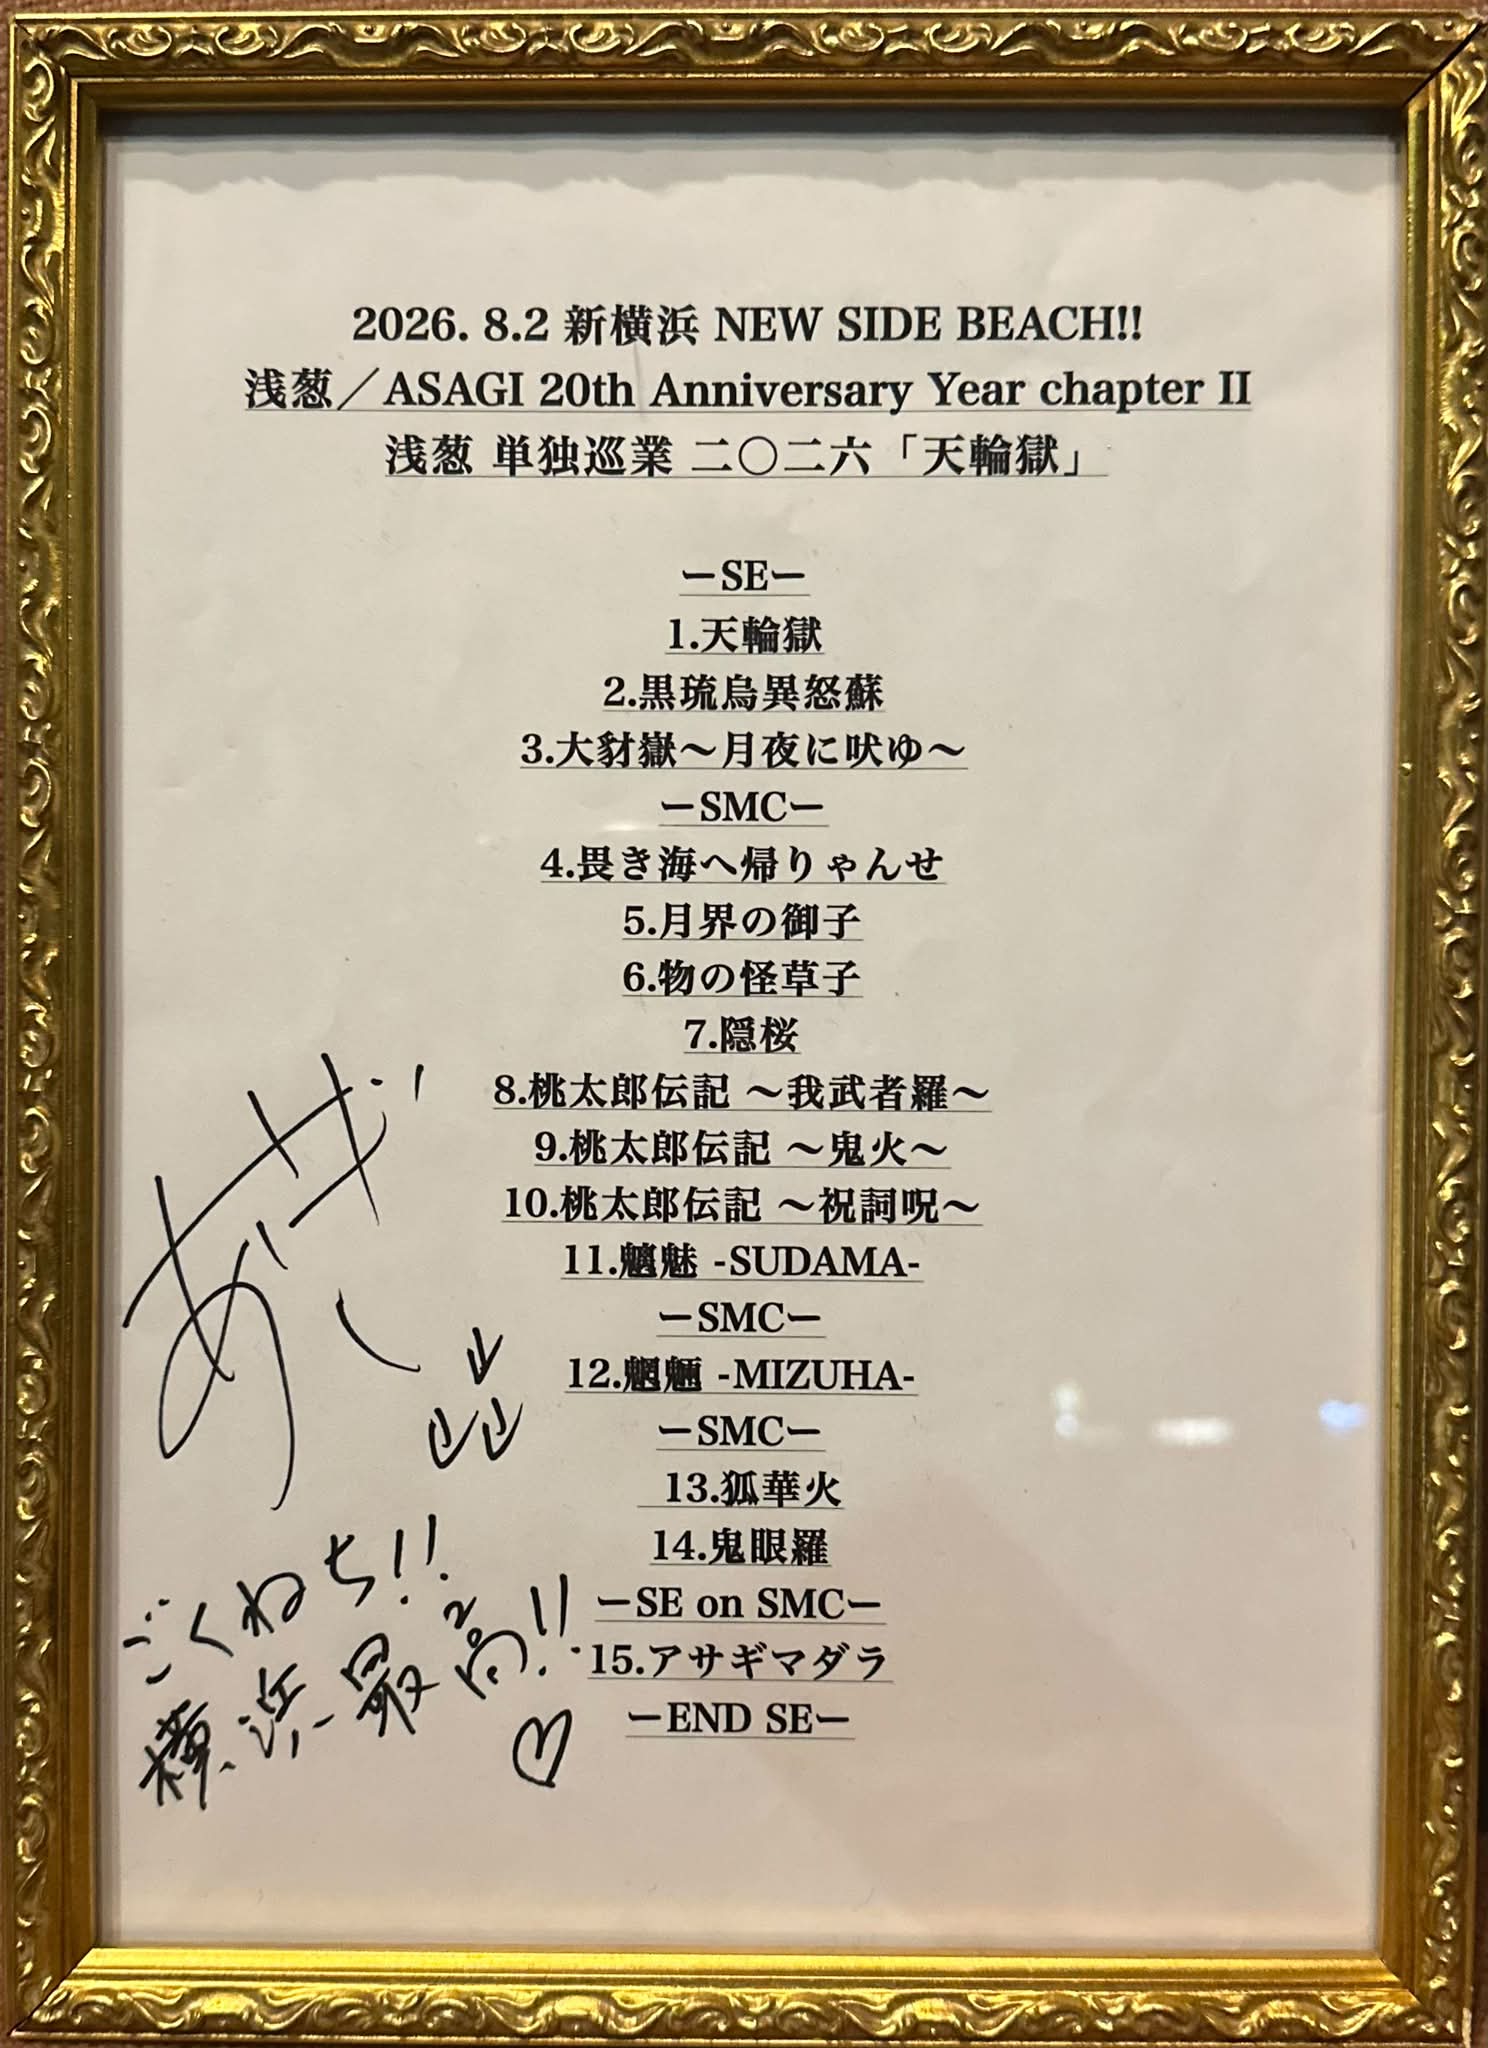 2026. 8.2 新横浜 NEW SIDE BEACH!!
浅葱／ASAGI 20th Anniversary Year chapter II
浅葱 単独巡業 二〇二六「天輪獄」
ーSEー
1.天輪獄
2.黒琉烏異怒蘇
3.大豺嶽〜月夜に吠ゆ〜
ーSMCー
4.畏き海へ帰りゃんせ
5.月界の御子
6.物の怪草子
7.隠桜
8.桃太郎伝記 〜我武者羅〜
9.桃太郎伝記 〜鬼火〜
10.桃太郎伝記 〜祝詞呪〜
11.魑魅 -SUDAMA-
ーSMCー
12.魍魎 -MIZUHA-
ーSMCー
13.狐華火
14.鬼眼羅
ーSE on SMCー
15.アサギマダラ
ーEND SEー
あさぎ
ごくねち!!
横浜最高!!